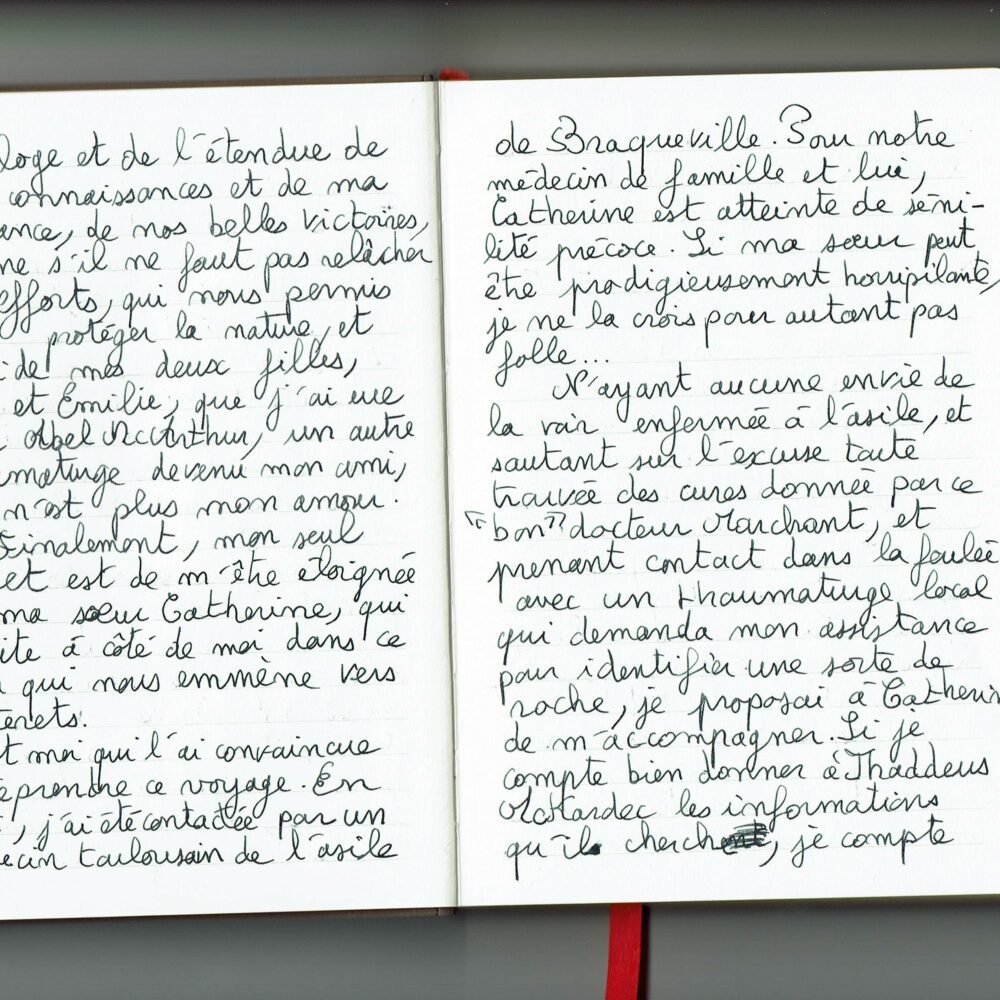 loge et de l'étendue de
connaissances et de ma
ance, de nos belles victoires,
ne s'il ne faut pas relâcher
efforts, qui nous permis
protéger la nature, et
de mes deux filles,
et Émilie, que j'ai eue
Abel McArthur, un autre
maturge devenu mon ami,
n'est plus mon amour.
Finalement, mon seul
et est de m'être éloignée
ma sœur Catherine, qui
ite à côté de moi dans ce
qui nous emmène vers
terets.
t moi qui l'ai convaincue
eprendre ce voyage. En
, j'ai été contactée par un
ecin toulousain de l'asile
de Braqueville. Pour notre
médecin de famille et lui,
Catherine est atteinte de séni-
lité précoce. Si ma sœur peut
être prodigieusement horripilante,
je ne la crois pour autant pas
folle...
N'ayant aucune envie de
la voir enfermée à l'asile, et
sautant sur l'excuse toute
trouvée des cures donnée par ce
"bon" docteur Marchant, et
prenant contact dans la foulée
avec un thaumaturge local
qui demanda mon assistance
pour identifier une sorte de
roche, je proposai à Catherin
de m'accompagner. Si je
compte bien donner à Thaddeus
les informations
qu'il cherche, je compte